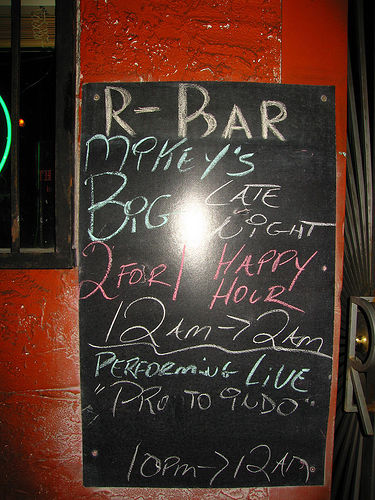 R-BAR
MiKEY'S
BiG LATE NiGHT
2 FOR 1 HAPPY HOUR
12AM→2AM
PERFORMiNG LiVE
"PRO TO 9NDO"
10PM→12AM